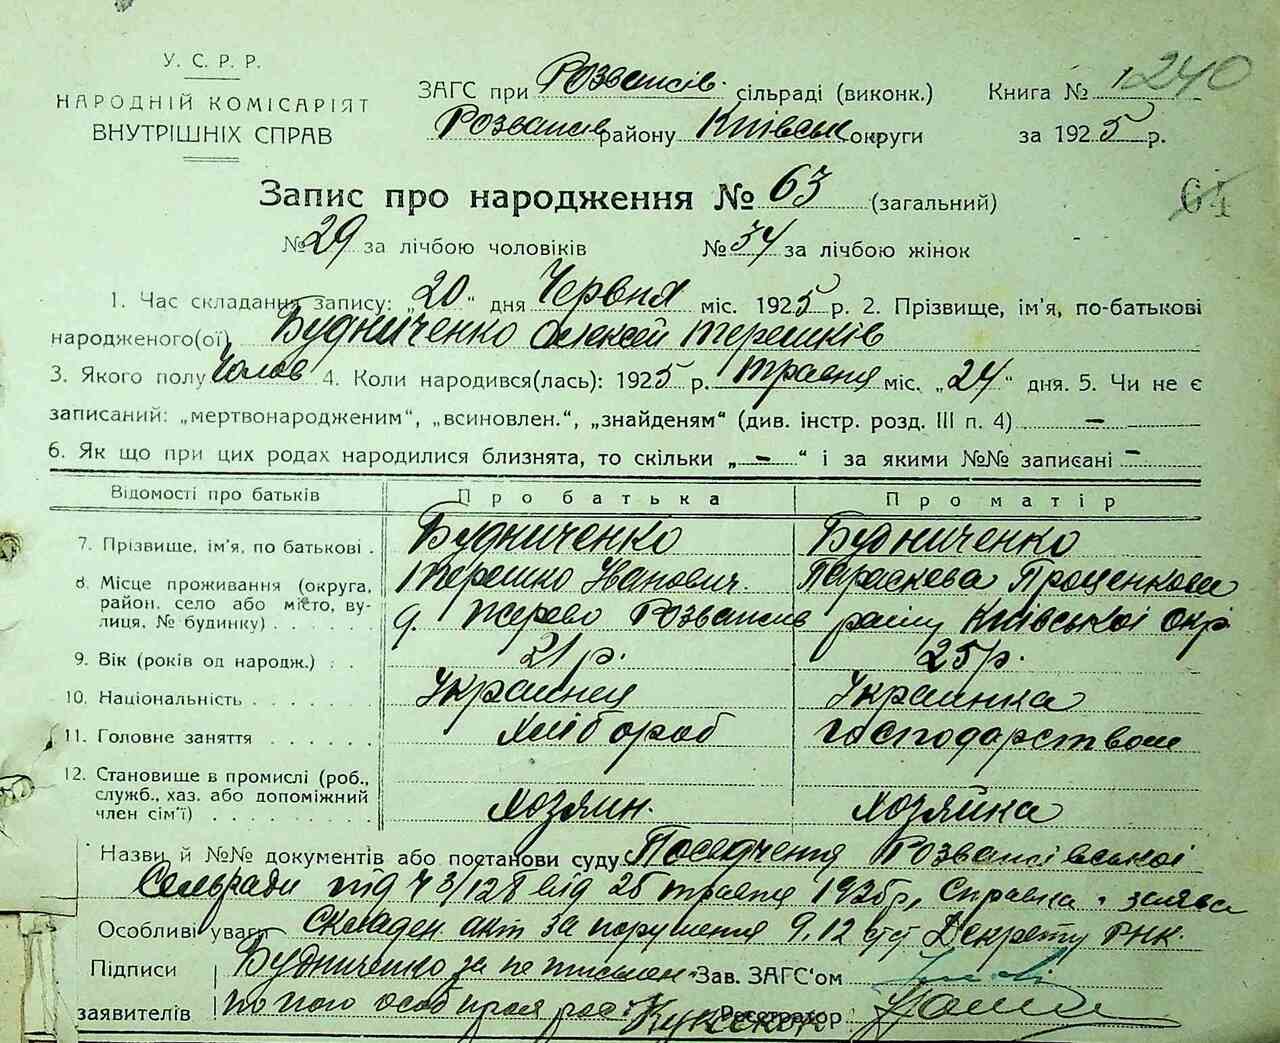 У. С. Р. Р.
НАРОДНІЙ КОМІСАРІЯТ
ВНУТРІШНІХ СПРАВ
ЗАГС при Розважів. сільраді (виконк.) Книга № 1240
Розважив району Київськ округи за 1925 р.
Запис про народження № 63 (загальний) 64
№ 29 за лічбою чоловіків № 34 за лічбою жінок
1. Час складання запису: „20" дня Червня міс. 1925 р. 2. Прізвище, ім'я, по-батькові
народженого(ої) Будниченко Олексей Терешків
3. Якого полу Чолов 4. Коли народився(лась): 1925 р. травня міс. „24" дня. 5. Чи не є
записаний: „мертвонародженим", „всиновлен.", „знайденям" (див. інстр. розд. III п. 4) —
6. Як що при цих родах народилися близнята, то скільки „—" і за якими №№ записані —
Відомості про батьків Про батька Про матір
7. Прізвище, ім'я, по батькові . Будниченко Будниченко
Терешко Иванович. Параскева Проценкова
8. Місце проживання (округа,
район, село або місто, ву-
лиця, № будинку) . . . . . д. Жерево Розважив району Київської окр
9. Вік (років од народж.) . . 21 р. 25 р.
10. Національність . . . . . . . Украинец Украинка
11. Головне заняття . . . . . . Хлібороб господарством
12. Становище в промислі (роб.,
служб., хаз. або допоміжний
член сім'ї) . . . . . . . . . Хозяин. Хозяйка
Назви й №№ документів або постанови суду Посвідчення Розважівської
Сельради під ч 3/128 від 25 травня 1925 р, Справка . заява
Особливі уваги Складен акт за порушення 9.12 ст Декрету РНК.
Підписи Будниченко за не писмен. Зав. ЗАГС'ом
заявителів по його особ Реєстратор